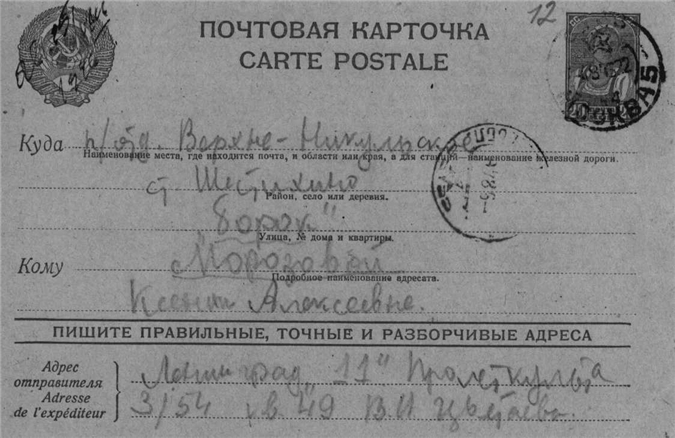 12
ПОЧТОВАЯ КАРТОЧКА
CARTE POSTALE
МОСКВА 5
Куда п/отд. Верхне-Никульское
Наименование места, где находится почта, и области или края, а для станций—наименование железной дороги.
ст. Шестихино
Район, село или деревня.
"Борок"
Улица, № дома и квартиры.
Кому Морозовой
Подробное наименование адресата.
Ксении Алексеевне.
ПИШИТЕ ПРАВИЛЬНЫЕ, ТОЧНЫЕ И РАЗБОРЧИВЫЕ АДРЕСА
Адрес отправителя Ленинград "11" Пролеткульта
Adresse de l'expéditeur 3/54 кв. 49 В.И.